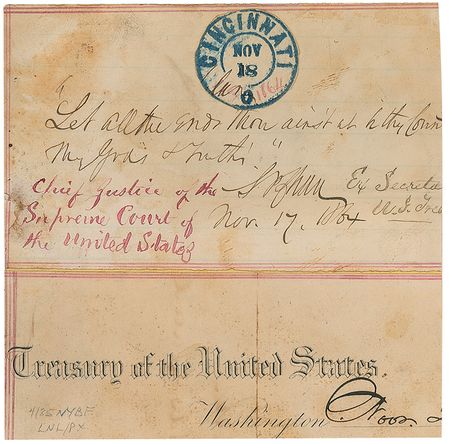 CINCINNATI
NOV
18
O
1864
"Let all the ends thou aimst at be thy Coun
My Gods & Truth's"
Chief Justice of the
Supreme Court of
the United States
Ex Secreta
Nov. 17. 1864
U.S. Trea
Treasury of the United States.
Washington Nov. 2
4/85 NYBF
LNL/PX